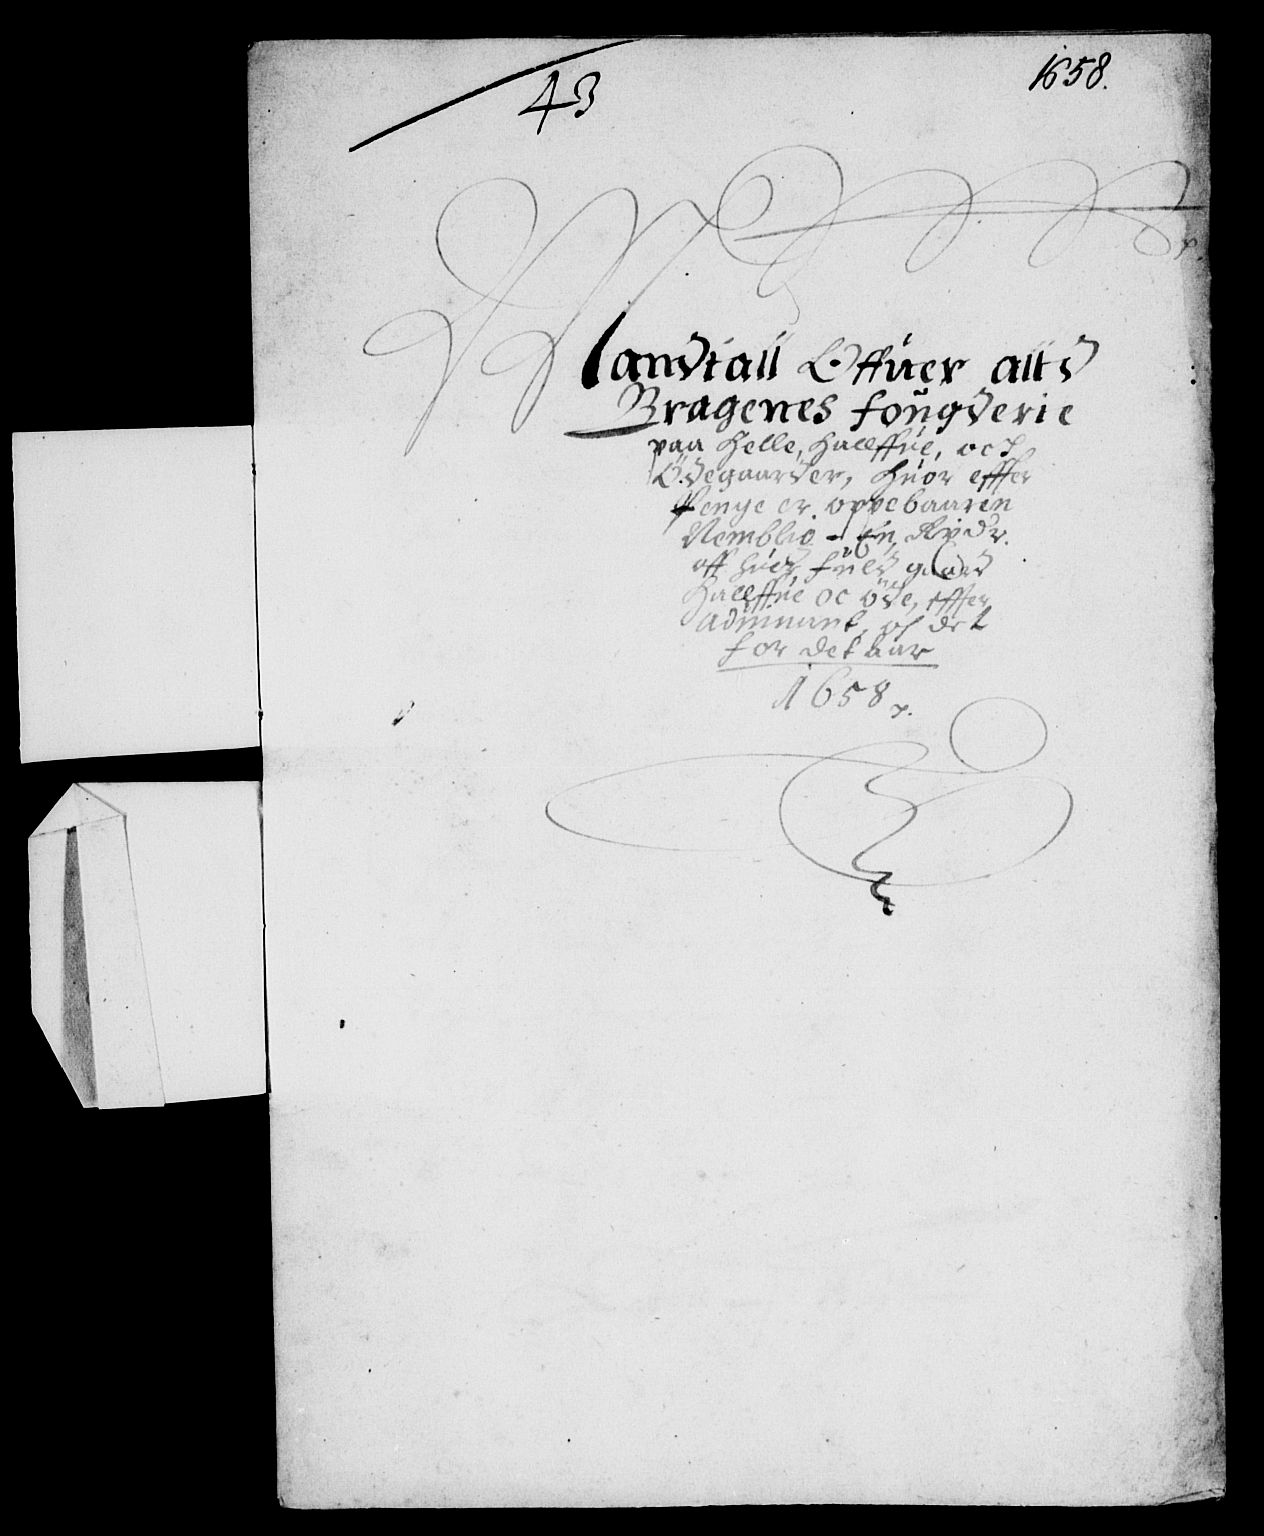 43
1658.
Mandtall Offuer alt
Bragenes fougderie
paa Helle, Hallffue, och
Ødegaarder, Huor effter
Penge er oppebaaren
Nemblig - En Rixdr.
off huer fuld gaard
Hallffue oc øde, effter
det
for det aar
1658